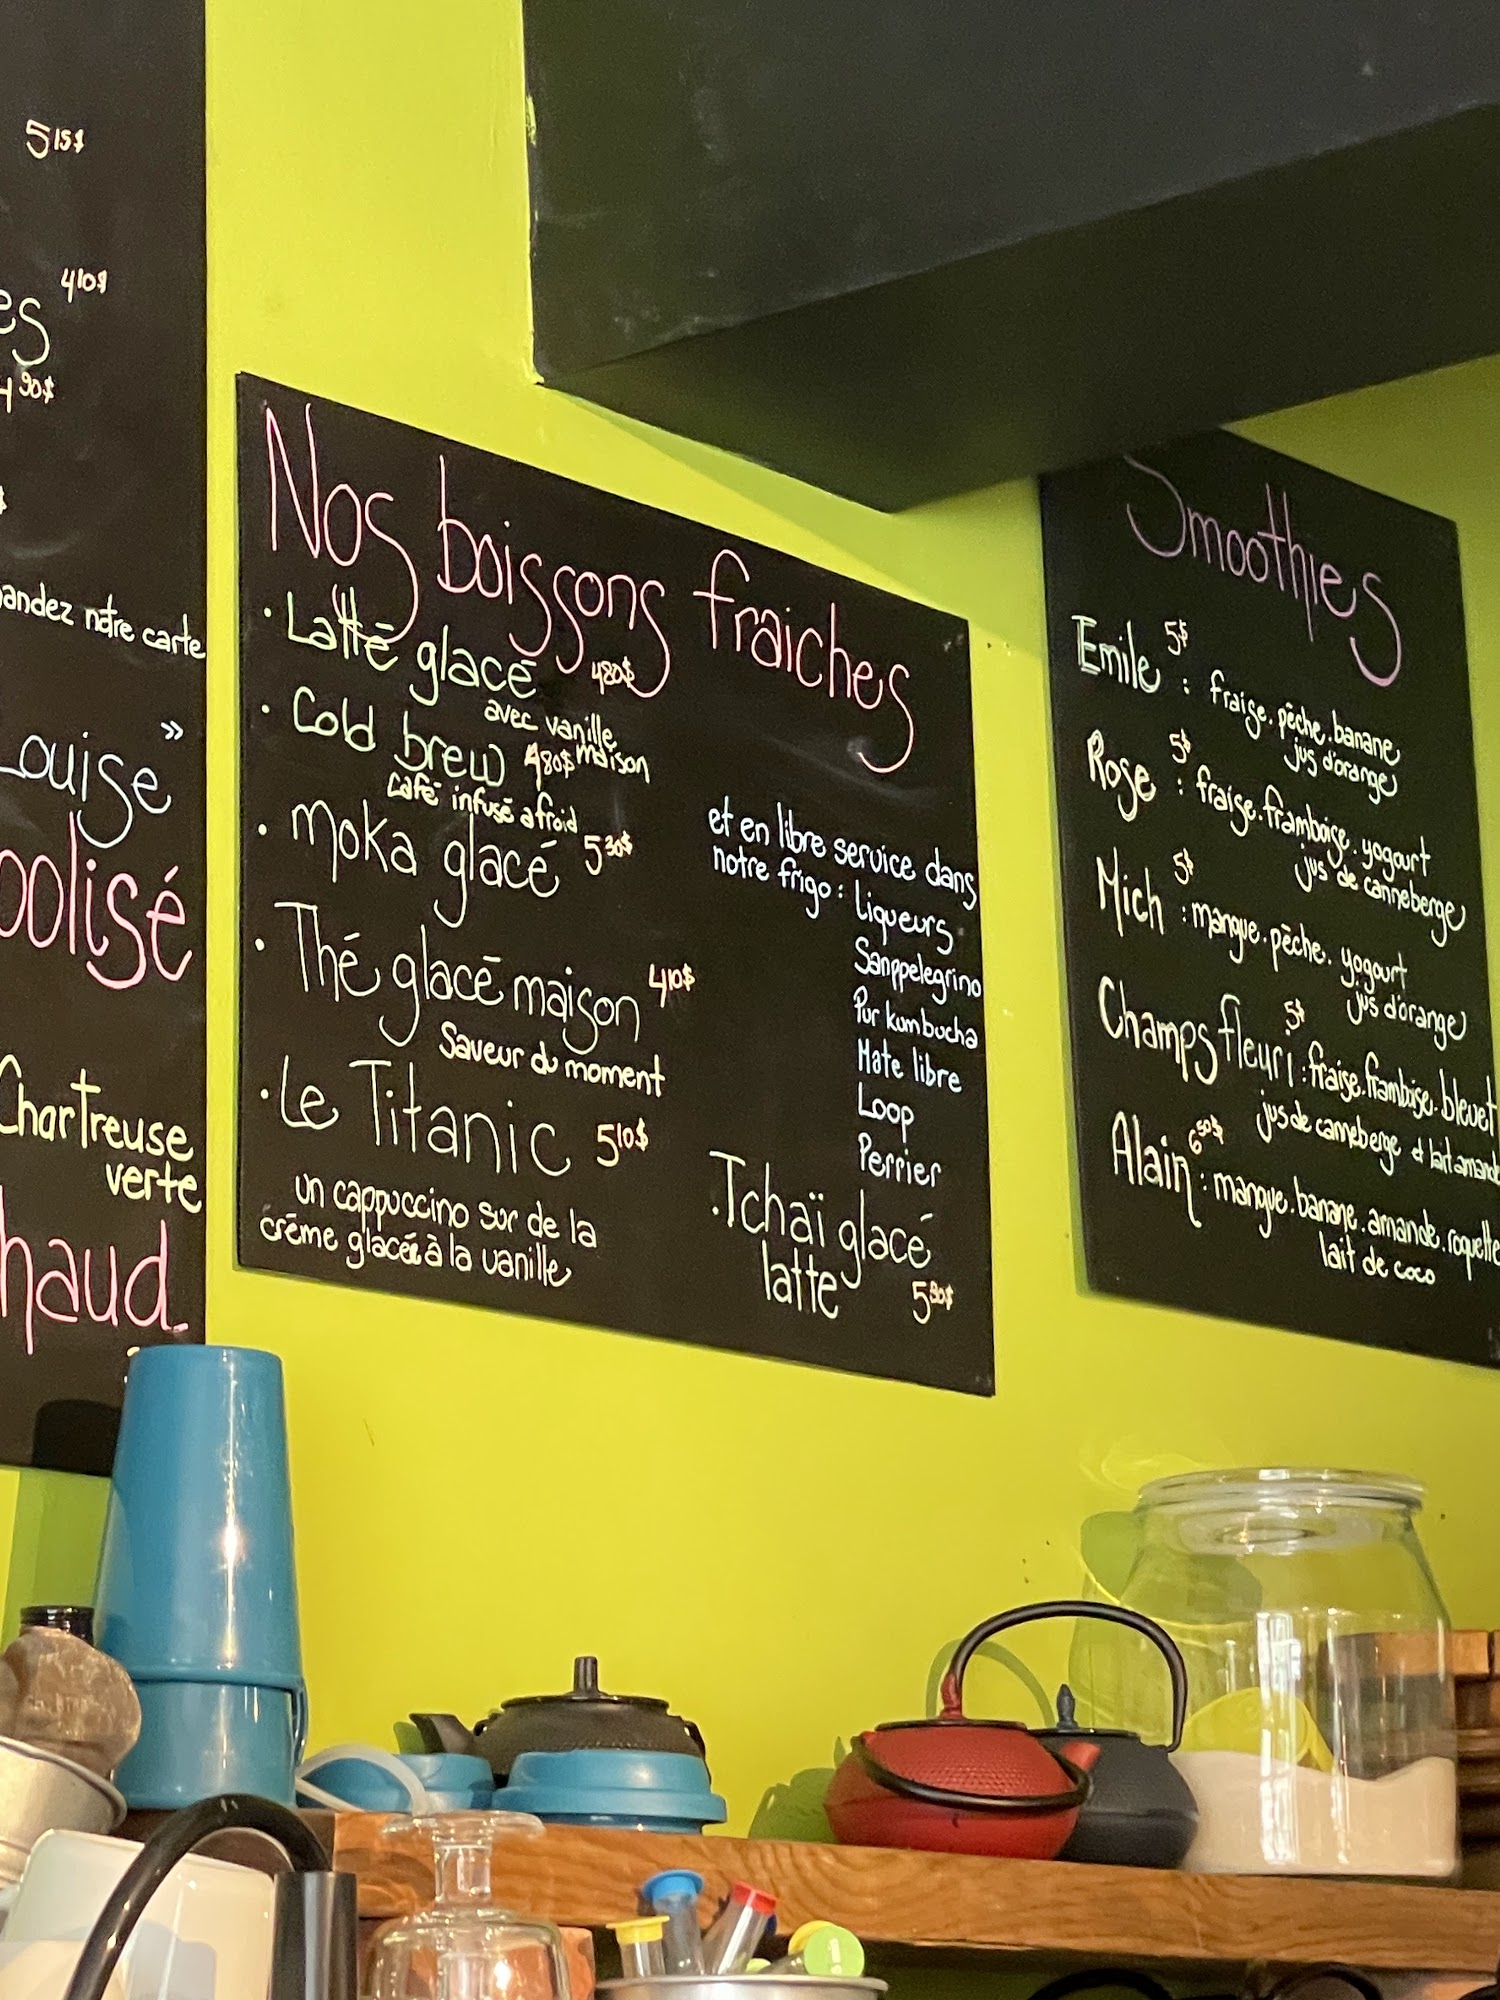 5 15$
4 10$
es
4 90$
$
andez nôtre carte
Louise »
oolisé
Chartreuse
verte
haud
Nos boissons fraiches
· Latté glacé 4 80$
avec vanille
maison
· Cold brew 4 80$
Café infusé a froid
· Moka glacé 5 30$
· Thé glacé maison 4 10$
Saveur du moment
· Le Titanic 5 10$
un cappuccino sur de la
crème glacée à la vanille
et en libre service dans
notre frigo : Liqueurs
Sanppelegrino
Pur kumbucha
Mate libre
Loop
Perrier
· Tchaï glacé
latte 5 90$
Smoothies
Emile 5$ : fraise. pêche. banane
jus d'orange
Rose 5$ : fraise. framboise. yogourt
jus de canneberge
Mich 5$ : mangue. pêche. yogourt
jus d'orange
Champs fleuri 5$ : fraise. framboise. bleuet
jus de canneberge et lait amande
Alain 6 50$ : mangue. banane. amande. roquette
lait de coco